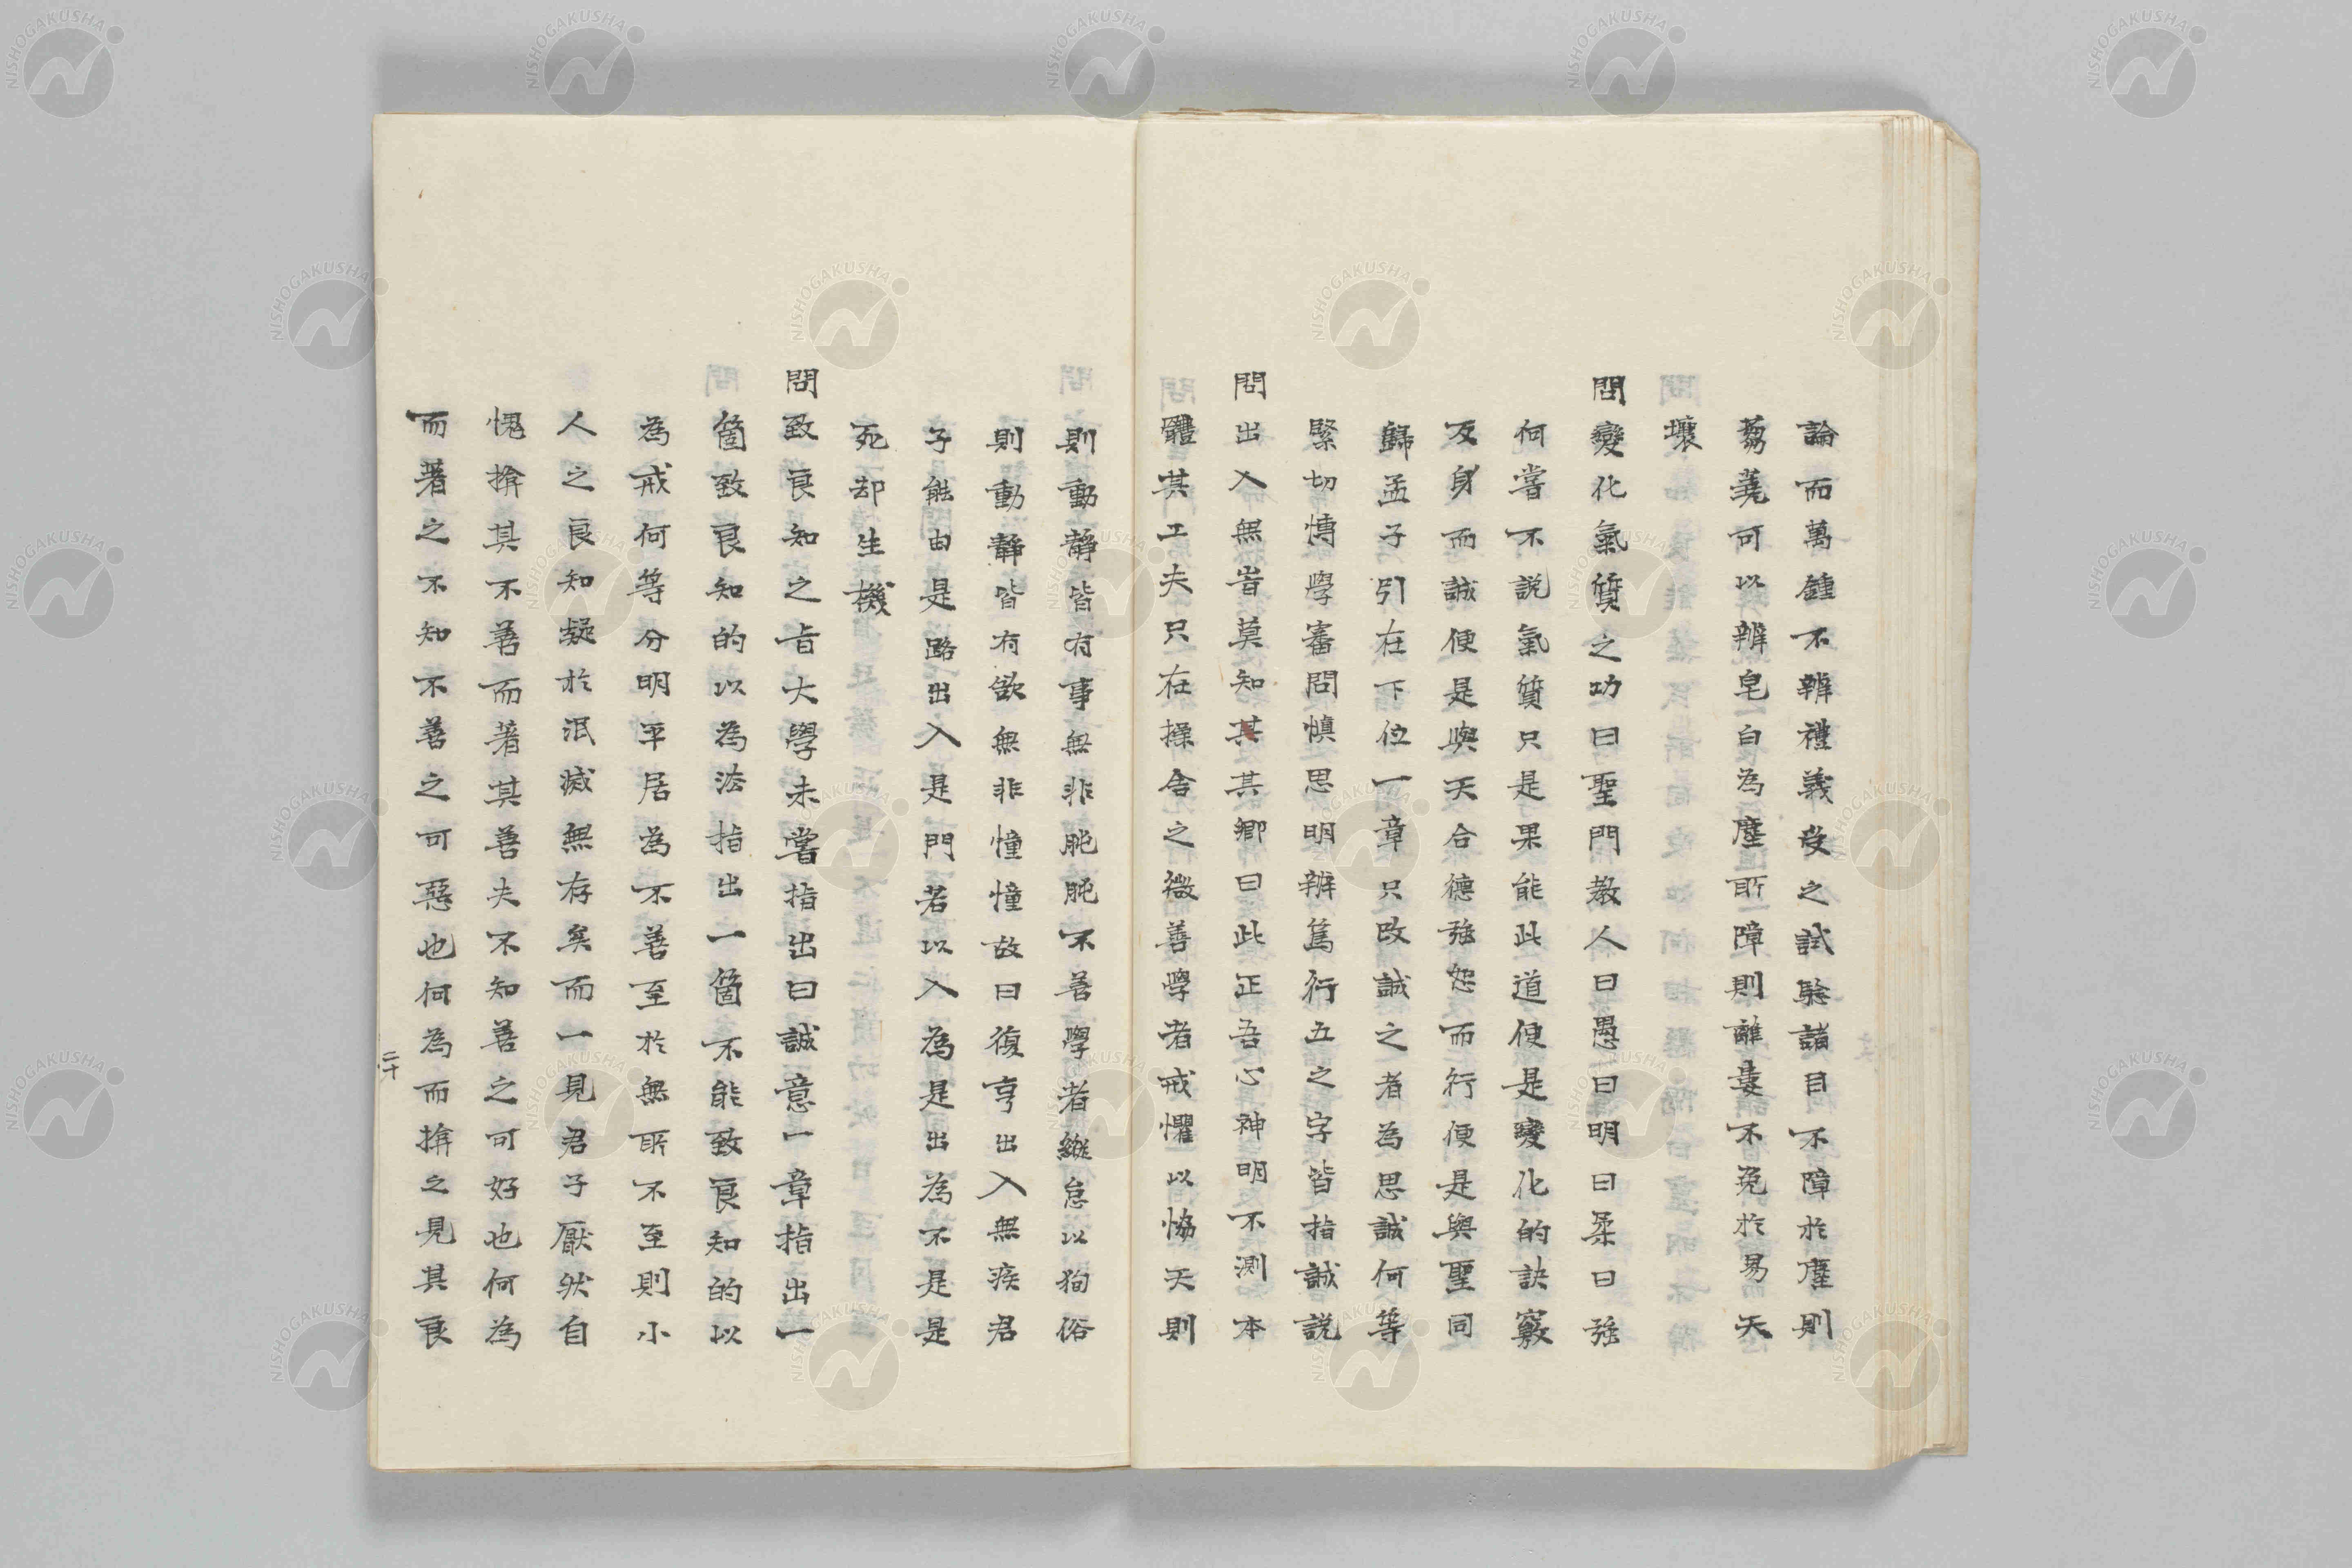 論而萬鍾不辨禮義受之試驗諸目不障於塵則
芻蕘可以辨皂白為塵所障則離婁不免於易天
壤
問變化氣質之功曰聖門教人曰愚曰明曰柔曰強
何嘗不説氣質只是果能此道便是變化的訣竅
反身而誠便是與天合德強恕而行便是與聖同
歸孟子引在下位一章只改誠之者為思誠何等
緊切愽學審問慎思明辨篤行五之字皆指誠説
問出入無旹莫知其其鄉曰此正吾心神明不測本
體其工夫只在操舍之微善學者戒懼以恊天則
則動靜皆有事無非肫肫不善學者縱怠以狥俗
則動靜皆有欲無非憧憧故曰復亨出入無疾君
子能由是路出入是門若以入為是出為不是是
死却生機
問致良知之旨大學未嘗指出曰誠意一章指出一
箇致良知的以為法指出一箇不能致良知的以
為戒何等分明平居為不善至於無所不至則小
人之良知疑於泯滅無存矣而一見君子厭然自
愧揜其不善而著其善夫不知善之可好也何為
而著之不知不善之可惡也何為而揜之見其良
二十
NISHOGAKUSHA